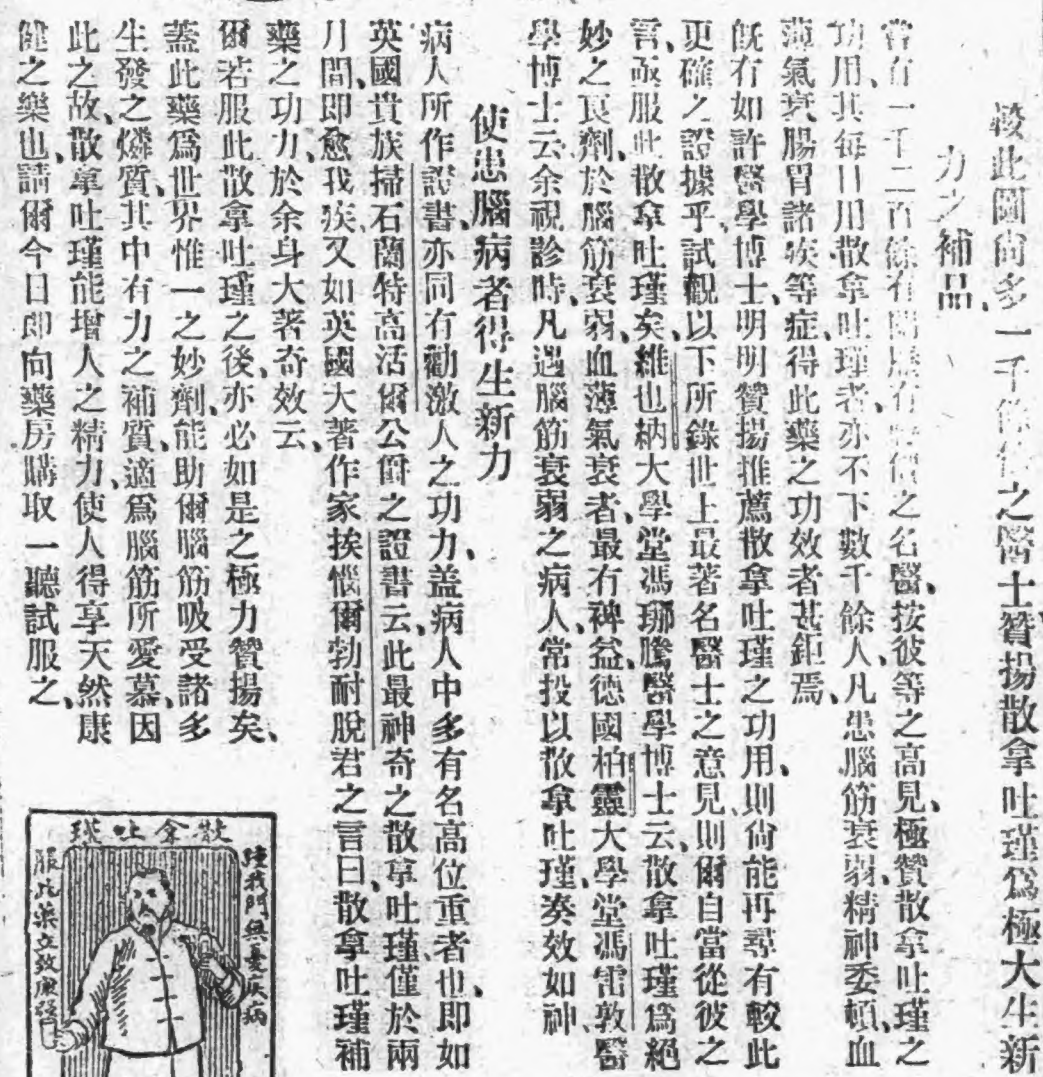 較此圖尙多一千餘位之醫士贊揚散拿吐瑾爲極大生新
力之補品、
當有一千二百餘有閱歷有特價之名醫、按彼等之高見、極贊散拿吐瑾之
功用、其每日用散拿吐瑾者、亦不下數千餘人、凡患腦筋衰弱、精神委頓、血
薄氣衰、腸胃諸疾等症、得此藥之功效者甚鉅焉、
旣有如許醫學博士、明明贊揚推薦散拿吐瑾之功用、則尙能再尋有較此
更確之證據乎、試觀以下所錄世上最著名醫士之意見、則爾自當從彼之
言、而服此散拿吐瑾矣、維也納大學堂馮瑯騰醫學博士云、散拿吐瑾爲絕
妙之良劑、於腦筋衰弱、血薄氣衰者、最有裨益、德國柏靈大學堂馮雷敦醫
學博士云、余視診時、凡遇腦筋衰弱之病人、常投以散拿吐瑾、湊效如神、
使患腦病者得生新力
病人所作證書、亦同有勸激人之功力、蓋病人中多有名高位重者也、卽如
英國貴族掃石蘭特高活爾公爵之證書云、此最神奇之散拿吐瑾、僅於兩
月間、卽愈我疾、又如英國大著作家挨惱爾勃耐脫君之言曰、散拿吐瑾補
藥之功力、於余身大著奇效云、
爾若服此散拿吐瑾之後、亦必如是之極力贊揚矣、
蓋此藥爲世界惟一之妙劑、能助爾腦筋吸受諸多
生發之燐質、其中有力之補質、適爲腦筋所愛慕、因
此之故、散拿吐瑾能增人之精力、使人得享天然康
健之樂也、請爾今日卽向藥房購取一聽試服之、
散拿吐瑾
踵我門無憂疾病
服此藥立效康強